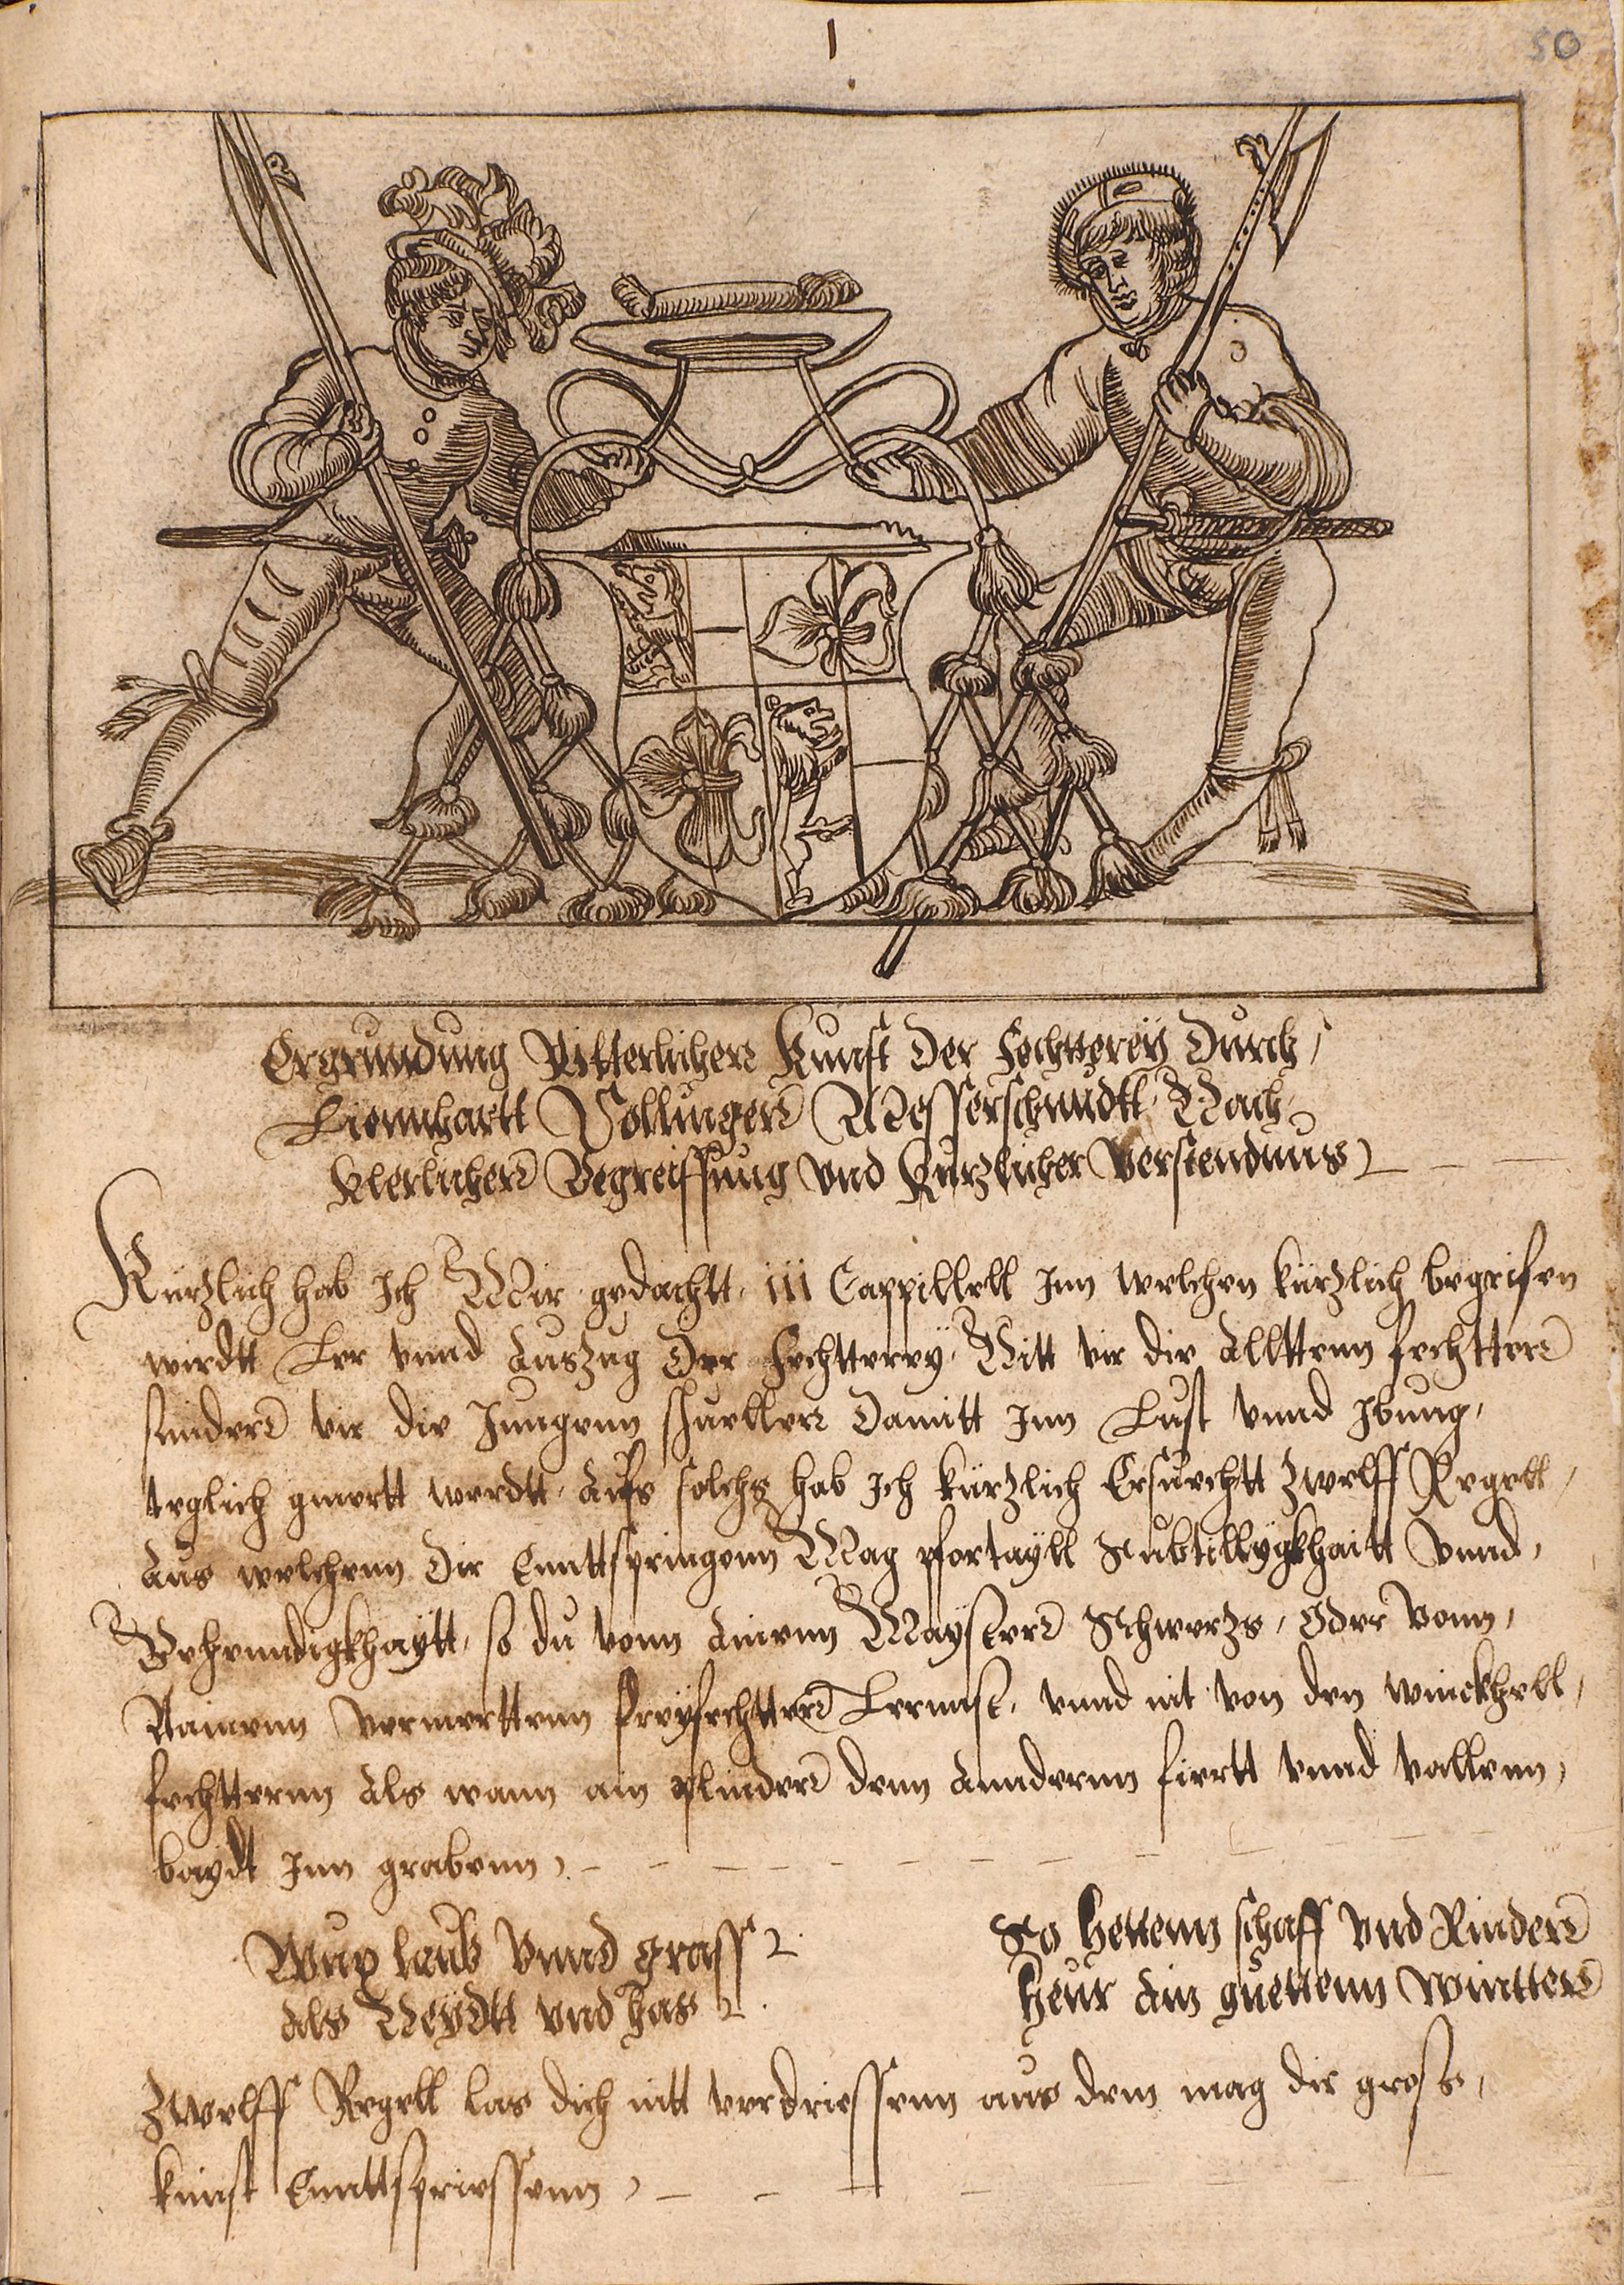 1
50
Ergrundung Ritterlicher Kunst Der Fechtterey Durch
Liennhartt Sollinger Messerschmidtt Nach
Klerlicher Begreiffung Vnd Kurzlicher Verstendnus
Kürzlich hab Ich Mir gedachtt iii Cappittell Inn welchen kürzlich begrifen
wirdtt Ler vnnd Auszug Der Fechtterey Nitt vir die Allttenn fechtter
sunder vir die Jungenn schueller Damitt Inn Lust vnnd Ibung
teglich gmertt werdtt Aufs solchs hab Ich kürzlich Ersuechtt Zwelff Regell
Aus welchenn Dir Enttspringenn Mag vortayll Subtillygkhaitt Vnnd
Behenndigkhaytt so du vonn Ainenn Mayster Schwerzs Oder Vonn
Ainenn Vermerttenn freyfechtter Lernnst vnnd nit von den winckhell
fechtternn Als wann ain plinder denn Anndernn fiertt vnnd vallenn
baydt Inn grabenn
Wux laub Vnnd grass
Als Neydtt vnd has
So hettenn schaff vnd Rinder
heur Ain guettenn wintter
Zwelff Regell las dich nitt verdriessenn aus dem mag dir gross
kunst Enttspriessenn